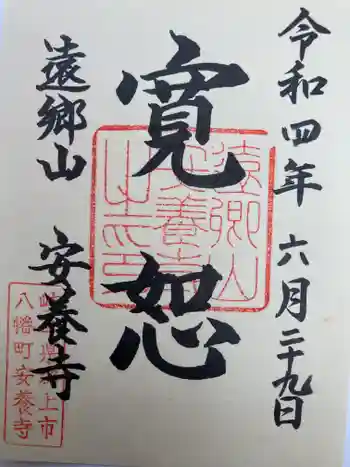 令和四年 六月二十九日
寛恕
遠郷山 安養寺
遠郷山
安養寺
之印
郡上市
八幡町安養寺